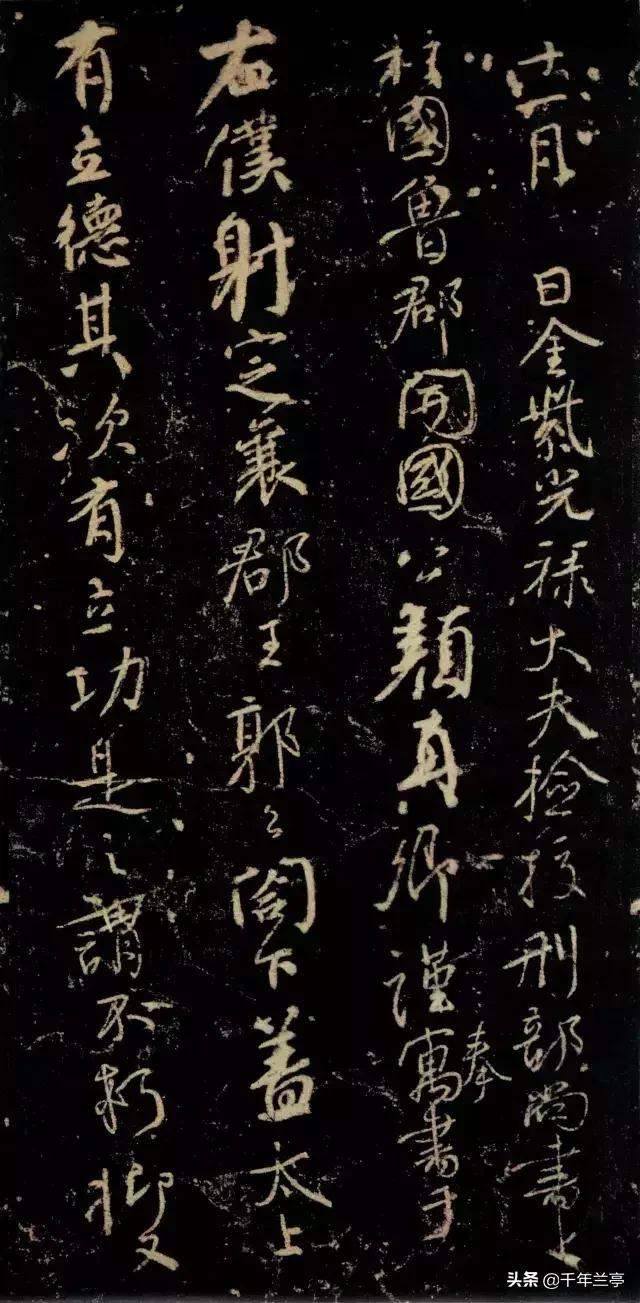 十一月 日金紫光祿大夫檢校刑部尚書上
柱國魯郡開國公顏真卿謹奉寓書于
右僕射定襄郡王郭公閤下蓋太上
有立德其次有立功是之謂不朽抑又
头条 @千年兰亭